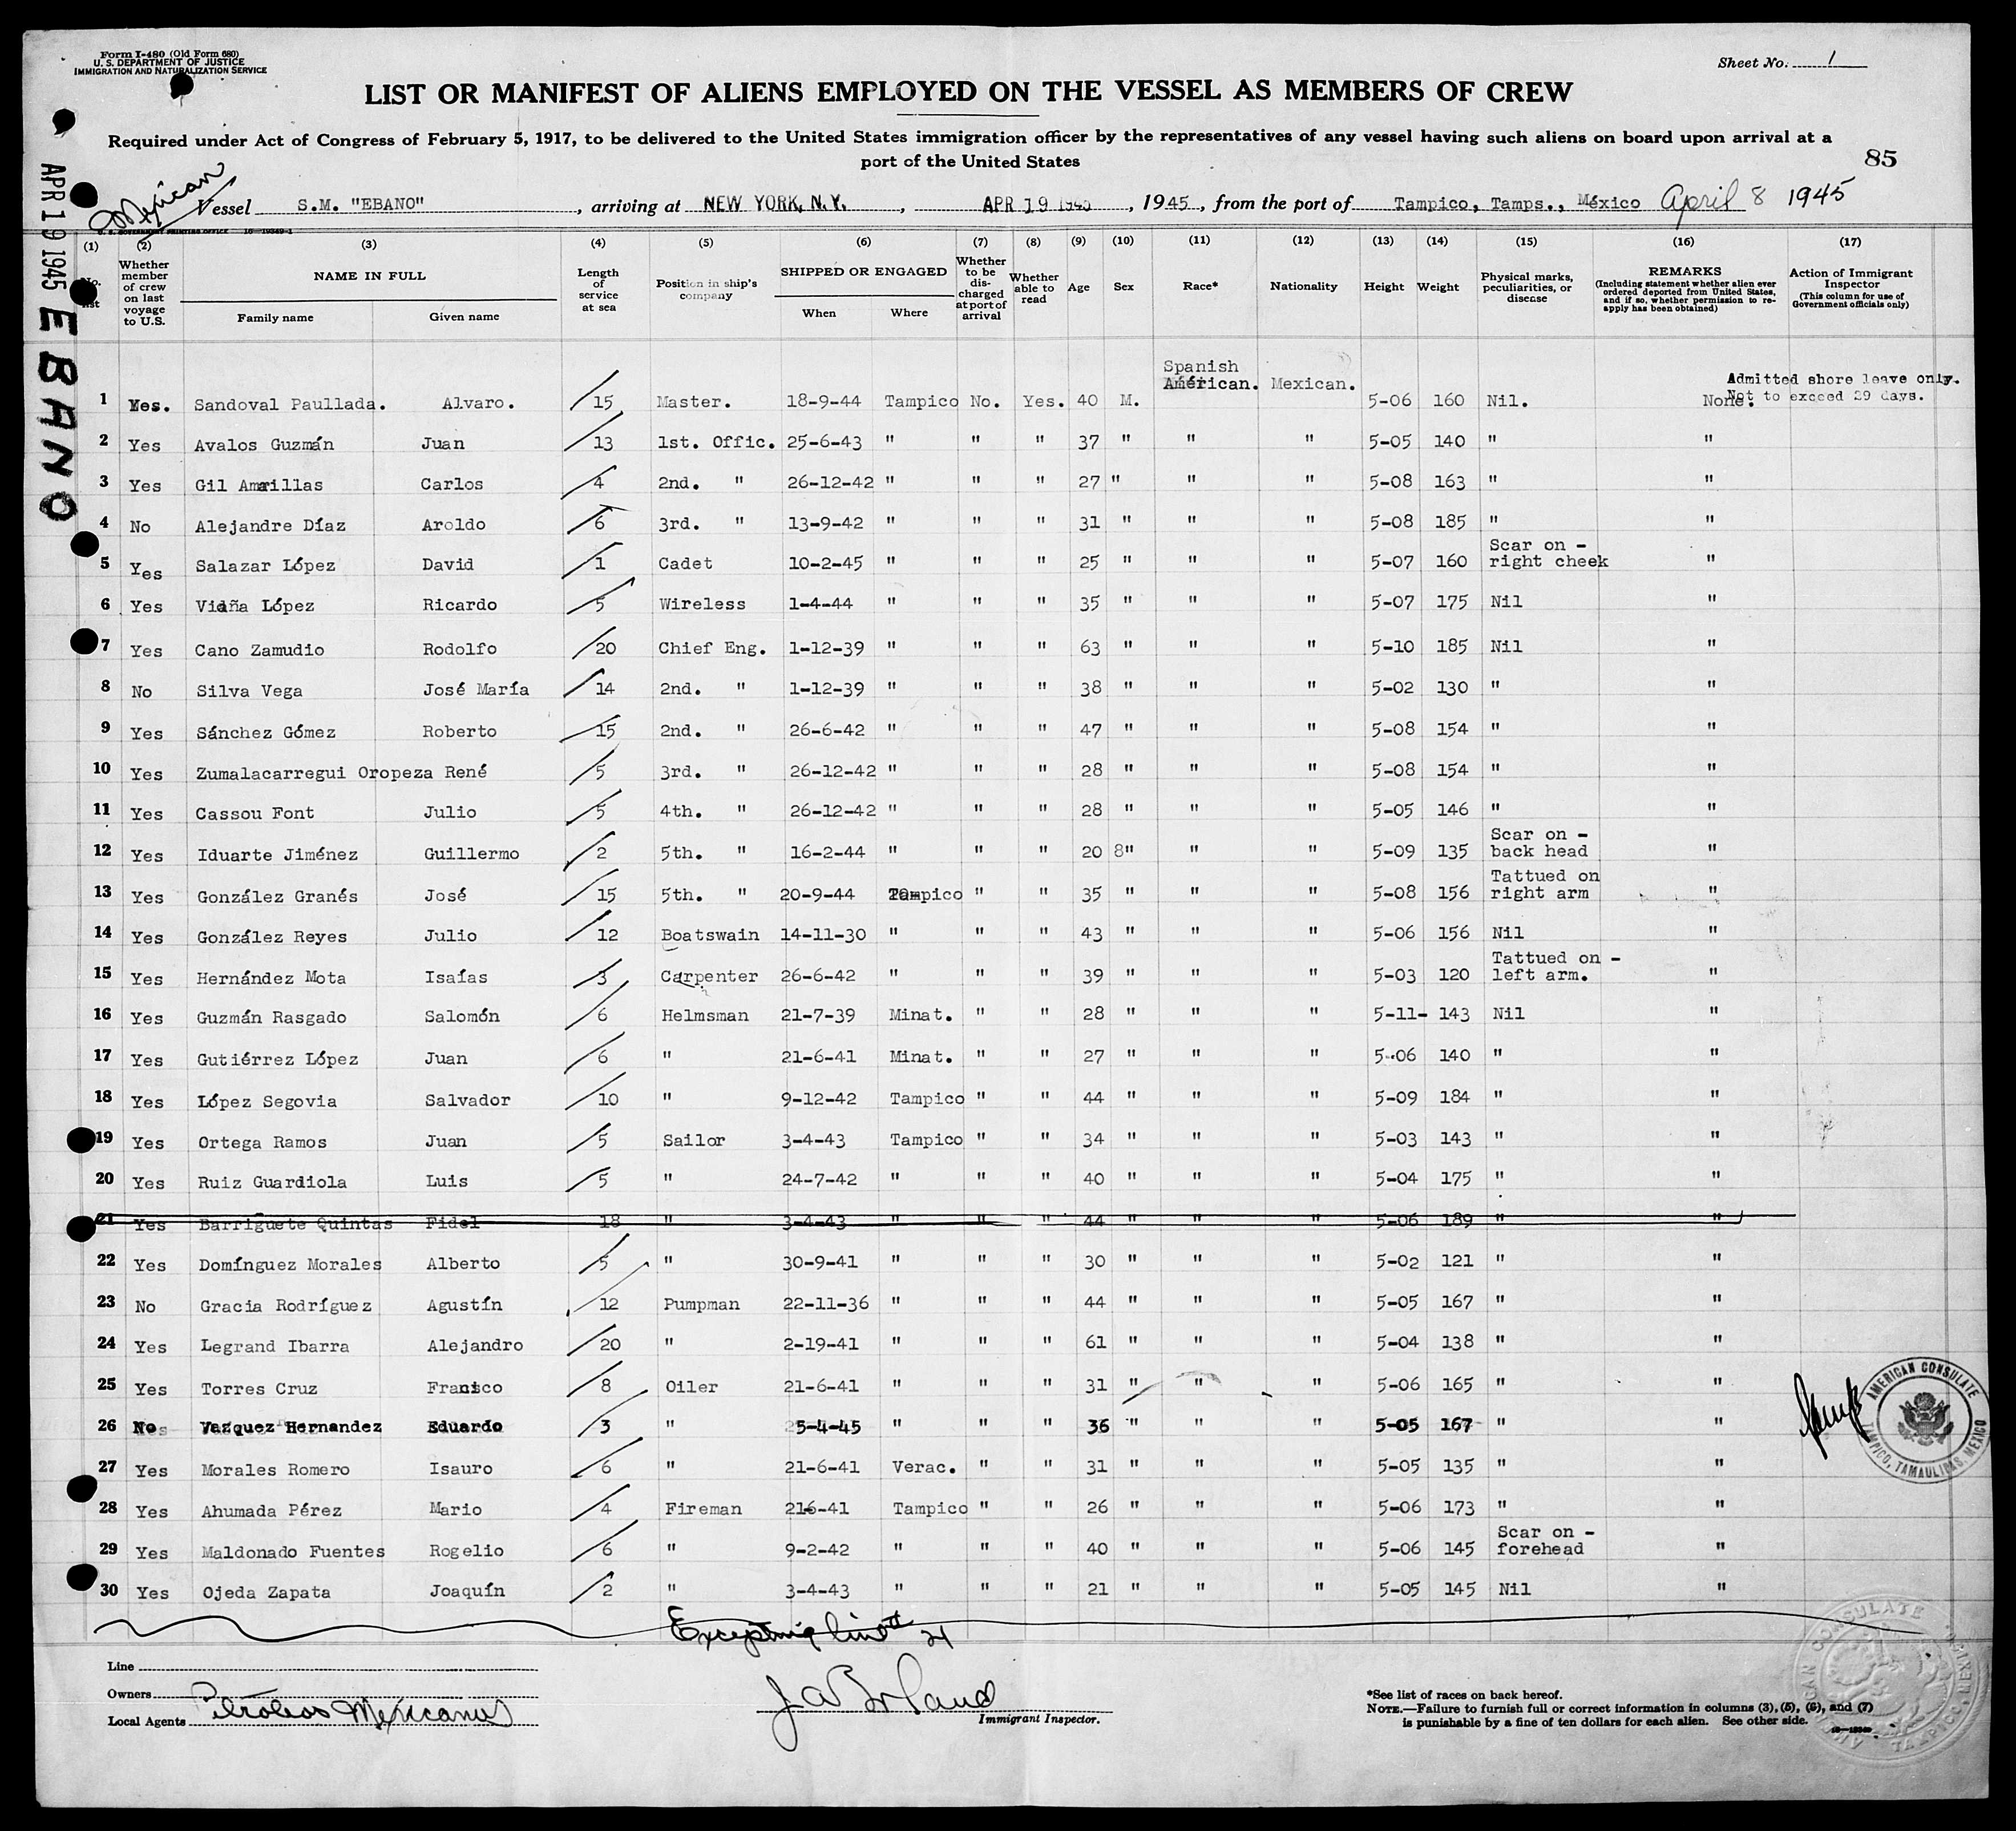 Form I-480 (Old Form 680)
U. S. DEPARTMENT OF JUSTICE
IMMIGRATION AND NATURALIZATION SERVICE
Sheet No. 1
LIST OR MANIFEST OF ALIENS EMPLOYED ON THE VESSEL AS MEMBERS OF CREW
Required under Act of Congress of February 5, 1917, to be delivered to the United States immigration officer by the representatives of any vessel having such aliens on board upon arrival at a
port of the United States
85
APR 19 1945 EBANO
Mexican
Vessel S.M. "EBANO", arriving at NEW YORK, N.Y., APR 19 1945, 1945, from the port of Tampico, Tamps., México April 8 1945
(1) (2) (3) (4) (5) (6) (7) (8) (9) (10) (11) (12) (13) (14) (15) (16) (17)
No. list
Whether member of crew on last voyage to U.S.
NAME IN FULL
Family name Given name
Length of service at sea
Position in ship's company
SHIPPED OR ENGAGED
When Where
Whether to be discharged at port of arrival
Whether able to read
Age
Sex
Race*
Nationality
Height
Weight
Physical marks, peculiarities, or disease
REMARKS
(Including statement whether alien ever ordered deported from United States, and if so, whether permission to re-apply has been obtained)
Action of Immigrant Inspector
(This column for use of Government officials only)
Admitted shore leave only.
Not to exceed 29 days.
1 Yes. Sandoval Paullada. Alvaro. 15 Master. 18-9-44 Tampico No. Yes. 40 M. Spanish American. Mexican. 5-06 160 Nil. None.
2 Yes Avalos Guzmán Juan 13 1st. Offic. 25-6-43 " " " 37 " " " 5-05 140 " "
3 Yes Gil Amarillas Carlos 4 2nd. " 26-12-42 " " " 27 " " " 5-08 163 " "
4 No Alejandre Díaz Aroldo 6 3rd. " 13-9-42 " " " 31 " " " 5-08 185 " "
5 Yes Salazar López David 1 Cadet 10-2-45 " " " 25 " " " 5-07 160 Scar on - right cheek "
6 Yes Vidña López Ricardo 5 Wireless 1-4-44 " " " 35 " " " 5-07 175 Nil "
7 Yes Cano Zamudio Rodolfo 20 Chief Eng. 1-12-39 " " " 63 " " " 5-10 185 Nil "
8 No Silva Vega José María 14 2nd. " 1-12-39 " " " 38 " " " 5-02 130 " "
9 Yes Sánchez Gómez Roberto 15 2nd. " 26-6-42 " " " 47 " " " 5-08 154 " "
10 Yes Zumalacarregui Oropeza René 5 3rd. " 26-12-42 " " " 28 " " " 5-08 154 " "
11 Yes Cassou Font Julio 5 4th. " 26-12-42 " " " 28 " " " 5-05 146 " "
12 Yes Iduarte Jiménez Guillermo 2 5th. " 16-2-44 " " " 20 8" " " 5-09 135 Scar on - back head "
13 Yes González Granés José 15 5th. " 20-9-44 Tampico " " 35 " " " 5-08 156 Tattued on right arm "
14 Yes González Reyes Julio 12 Boatswain 14-11-30 " " " 43 " " " 5-06 156 Nil "
15 Yes Hernández Mota Isaías 3 Carpenter 26-6-42 " " " 39 " " " 5-03 120 Tattued on - left arm. "
16 Yes Guzmán Rasgado Salomón 6 Helmsman 21-7-39 Minat. " " 28 " " " 5-11- 143 Nil "
17 Yes Gutiérrez López Juan 6 " 21-6-41 Minat. " " 27 " " " 5-06 140 " "
18 Yes López Segovia Salvador 10 " 9-12-42 Tampico " " 44 " " " 5-09 184 " "
19 Yes Ortega Ramos Juan 5 Sailor 3-4-43 Tampico " " 34 " " " 5-03 143 " "
20 Yes Ruiz Guardiola Luis 5 " 24-7-42 " " " 40 " " " 5-04 175 " "
21 Yes Barriguete Quintas Fidel 18 " 3-4-43 " " " 44 " " " 5-06 189 " "
22 Yes Domínguez Morales Alberto 5 " 30-9-41 " " " 30 " " " 5-02 121 " "
23 No Gracia Rodríguez Agustín 12 Pumpman 22-11-36 " " " 44 " " " 5-05 167 " "
24 Yes Legrand Ibarra Alejandro 20 " 2-19-41 " " " 61 " " " 5-04 138 " "
25 Yes Torres Cruz Francisco 8 Oiler 21-6-41 " " " 31 " " " 5-06 165 " "
26 No Vazquez Hernandez Eduardo 3 " 5-4-45 " " " 36 " " " 5-05 167 " "
27 Yes Morales Romero Isauro 6 " 21-6-41 Verac. " " 31 " " " 5-05 135 " "
28 Yes Ahumada Pérez Mario 4 Fireman 216-41 Tampico " " 26 " " " 5-06 173 " "
29 Yes Maldonado Fuentes Rogelio 6 " 9-2-42 " " " 40 " " " 5-06 145 Scar on - forehead "
30 Yes Ojeda Zapata Joaquín 2 " 3-4-43 " " " 21 " " " 5-05 145 Nil "
AMERICAN CONSULATE
TAMPICO, TAMAULIPAS, MEXICO
Excepting line 21
Line
Owners
Local Agents Petroleos Mexicanos
Immigrant Inspector.
*See list of races on back hereof.
NOTE.—Failure to furnish full or correct information in columns (3), (5), (6), and (7)
is punishable by a fine of ten dollars for each alien. See other side.